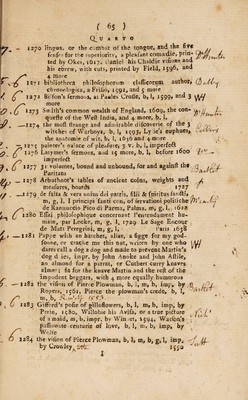 ( 65 )
QUARTO
1270 lingua, or the combat of the tongue, and the five
senses for the superiority, a pleasant comœdie, printed by Okes, 1617. Daniel his Chaldie visions and
his ebrew, with cuts, printed by Field, 1596, and
4 more
1271 bibliotheca philosophorum classicorum author,
chronologica, a Frisio, 1592, and 5 more
1272 Bilson's sermons at Paules Crosse, b, l, 1599, and 3
more
1273 Smith's common wealth of England, 1609, the conqueste of the West India, and 4 more, b, l,
1274 the most strange and admirable discoverie of the 3
witches of Warboys, b, l, 1593, Ly ie's euphues,
the anatomie of wit, b, l, 1636 and 4 more
1275 painter's palace of pleasure, 3 v. b, l, imperfect
1276 Latymer's sermons, and 15 more, b, l, before 1600
imperfect
1277 21 volumes, bound and unbound, for and against the
Puritans
1278 Arbuthnot's tables of ancient coins, weights and
measures, boards 1727
1279
m, g, l, i principii santi con, of servations politiche
de Rannuccio Pico di Parma, Palma, m, g, l, 1628
1280 Essai philosophique concernant l'entendement humain, par Locke, m, g, l, 1729 Le Sage Enconc
de Matt Peregrini, m, g, l, Paris 1638
1281 Pappe with an hatchet, alias, a figge for my godsonne, or cracke me this nut, writen by one who
dares call a dog a dog and made to prevent Martin's
dog d ies, impr. by John Anoke and John Astile,
an almond for a parrat, or Cutbert curry knaves
almes; fit for the knave Martin and the rest of the
impudent beggars, with 4 more equally humorous
1282 the vision of Pierce Plowman, b, l, m, b, imp, by
Rogers, 1561, Pierce the plowman's crede, b, l,
m, b,
1283 Gifford's posie of gilloflowers, b, l, m, b, imp, by
Perin, 1580, Willobie his Avisa, or a true picture
of a maid, m, b, impr. by Win et, 1594, Watson's
passionate centurie of love, b, l, m, b, imp, by
Wolfe
1284 the vision of Pierce Plowman, b, l, m, b, g, l, imp,
by Crowley, 1550
I